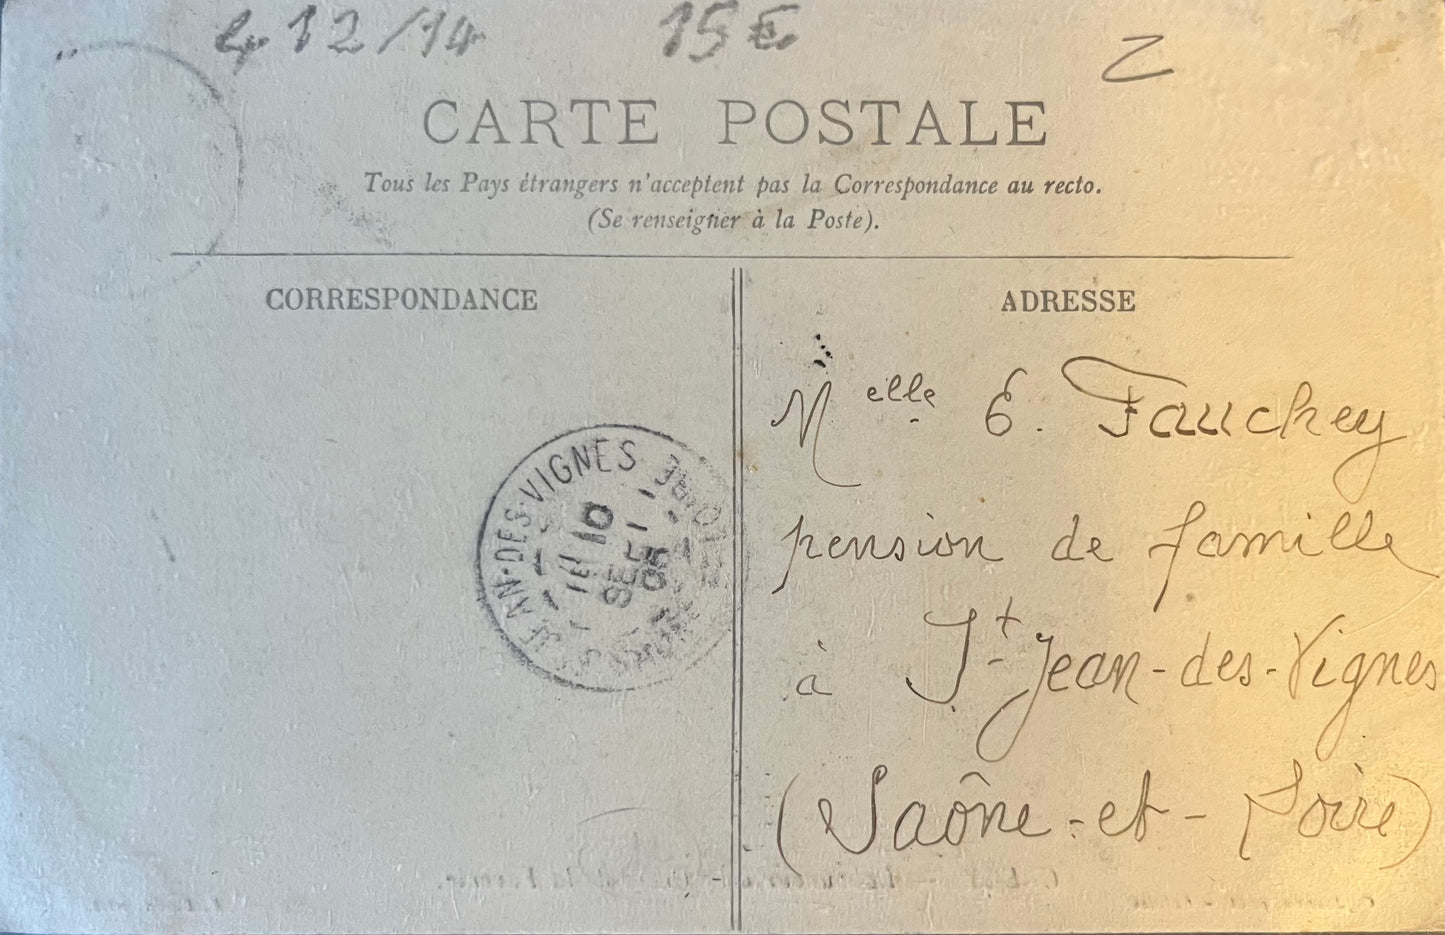 12/14 15€ Z
CARTE POSTALE
Tous les Pays étrangers n'acceptent pas la Correspondance au recto.
(Se renseigner à la Poste).
CORRESPONDANCE
ADRESSE
Melle E. Fauchey
pension de famille
à St-Jean-des-Vignes
(Saône-et-Loire)
JEAN-DES-VIGNES
10
SEPT
05